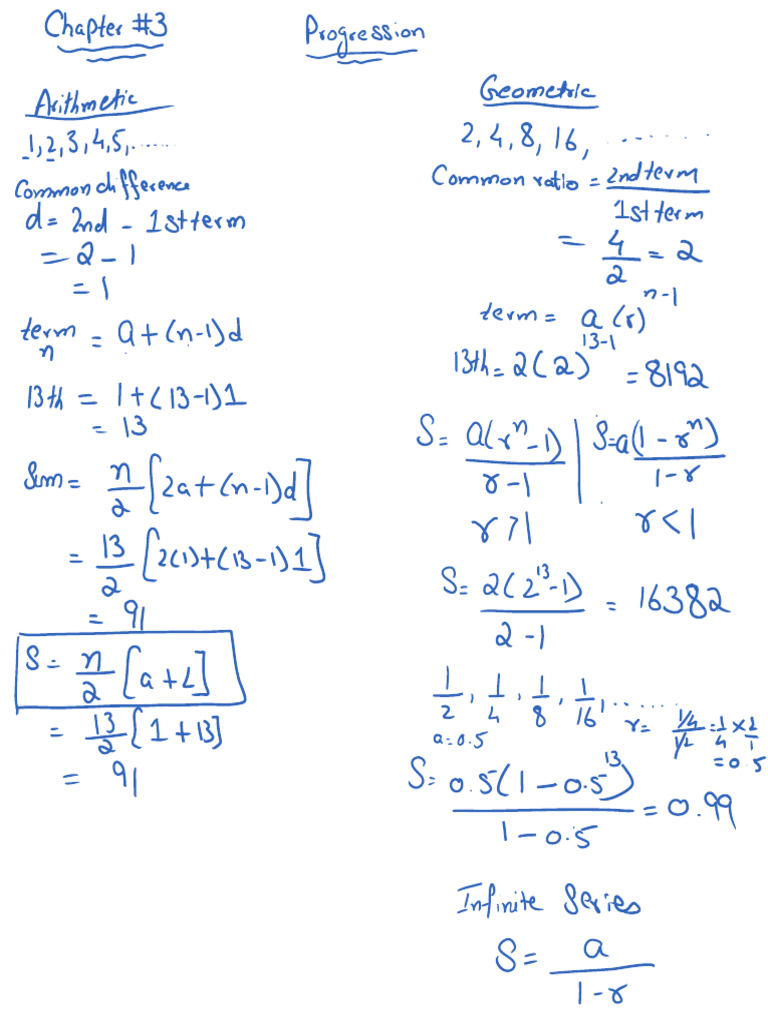 Chapter #3
Progression
Arithmetic
1, 2, 3, 4, 5, ......
Common difference
d = 2nd - 1st term
= 2 - 1
= 1
term n = a + (n-1)d
13th = 1 + (13-1)1
= 13
Sum = n/2 [2a + (n-1)d]
= 13/2 [2(1) + (13-1)1]
= 91
S = n/2 [a + L]
= 13/2 [1 + 13]
= 91
Geometric
2, 4, 8, 16, ........
Common ratio = 2nd term / 1st term
= 4/2 = 2
term = a (r)^n-1
13th = 2(2)^13-1 = 8192
S = a(r^n - 1) / r - 1 | S = a(1 - r^n) / 1 - r
r > 1 r < 1
S = 2(2^13 - 1) / 2 - 1 = 16382
1/2, 1/4, 1/8, 1/16, ......
a = 0.5 r = 1/4 / 1/2 = 1/4 × 2/1
= 0.5
S = 0.5(1 - 0.5^13) / 1 - 0.5 = 0.99
Infinite Series
S = a / 1 - r